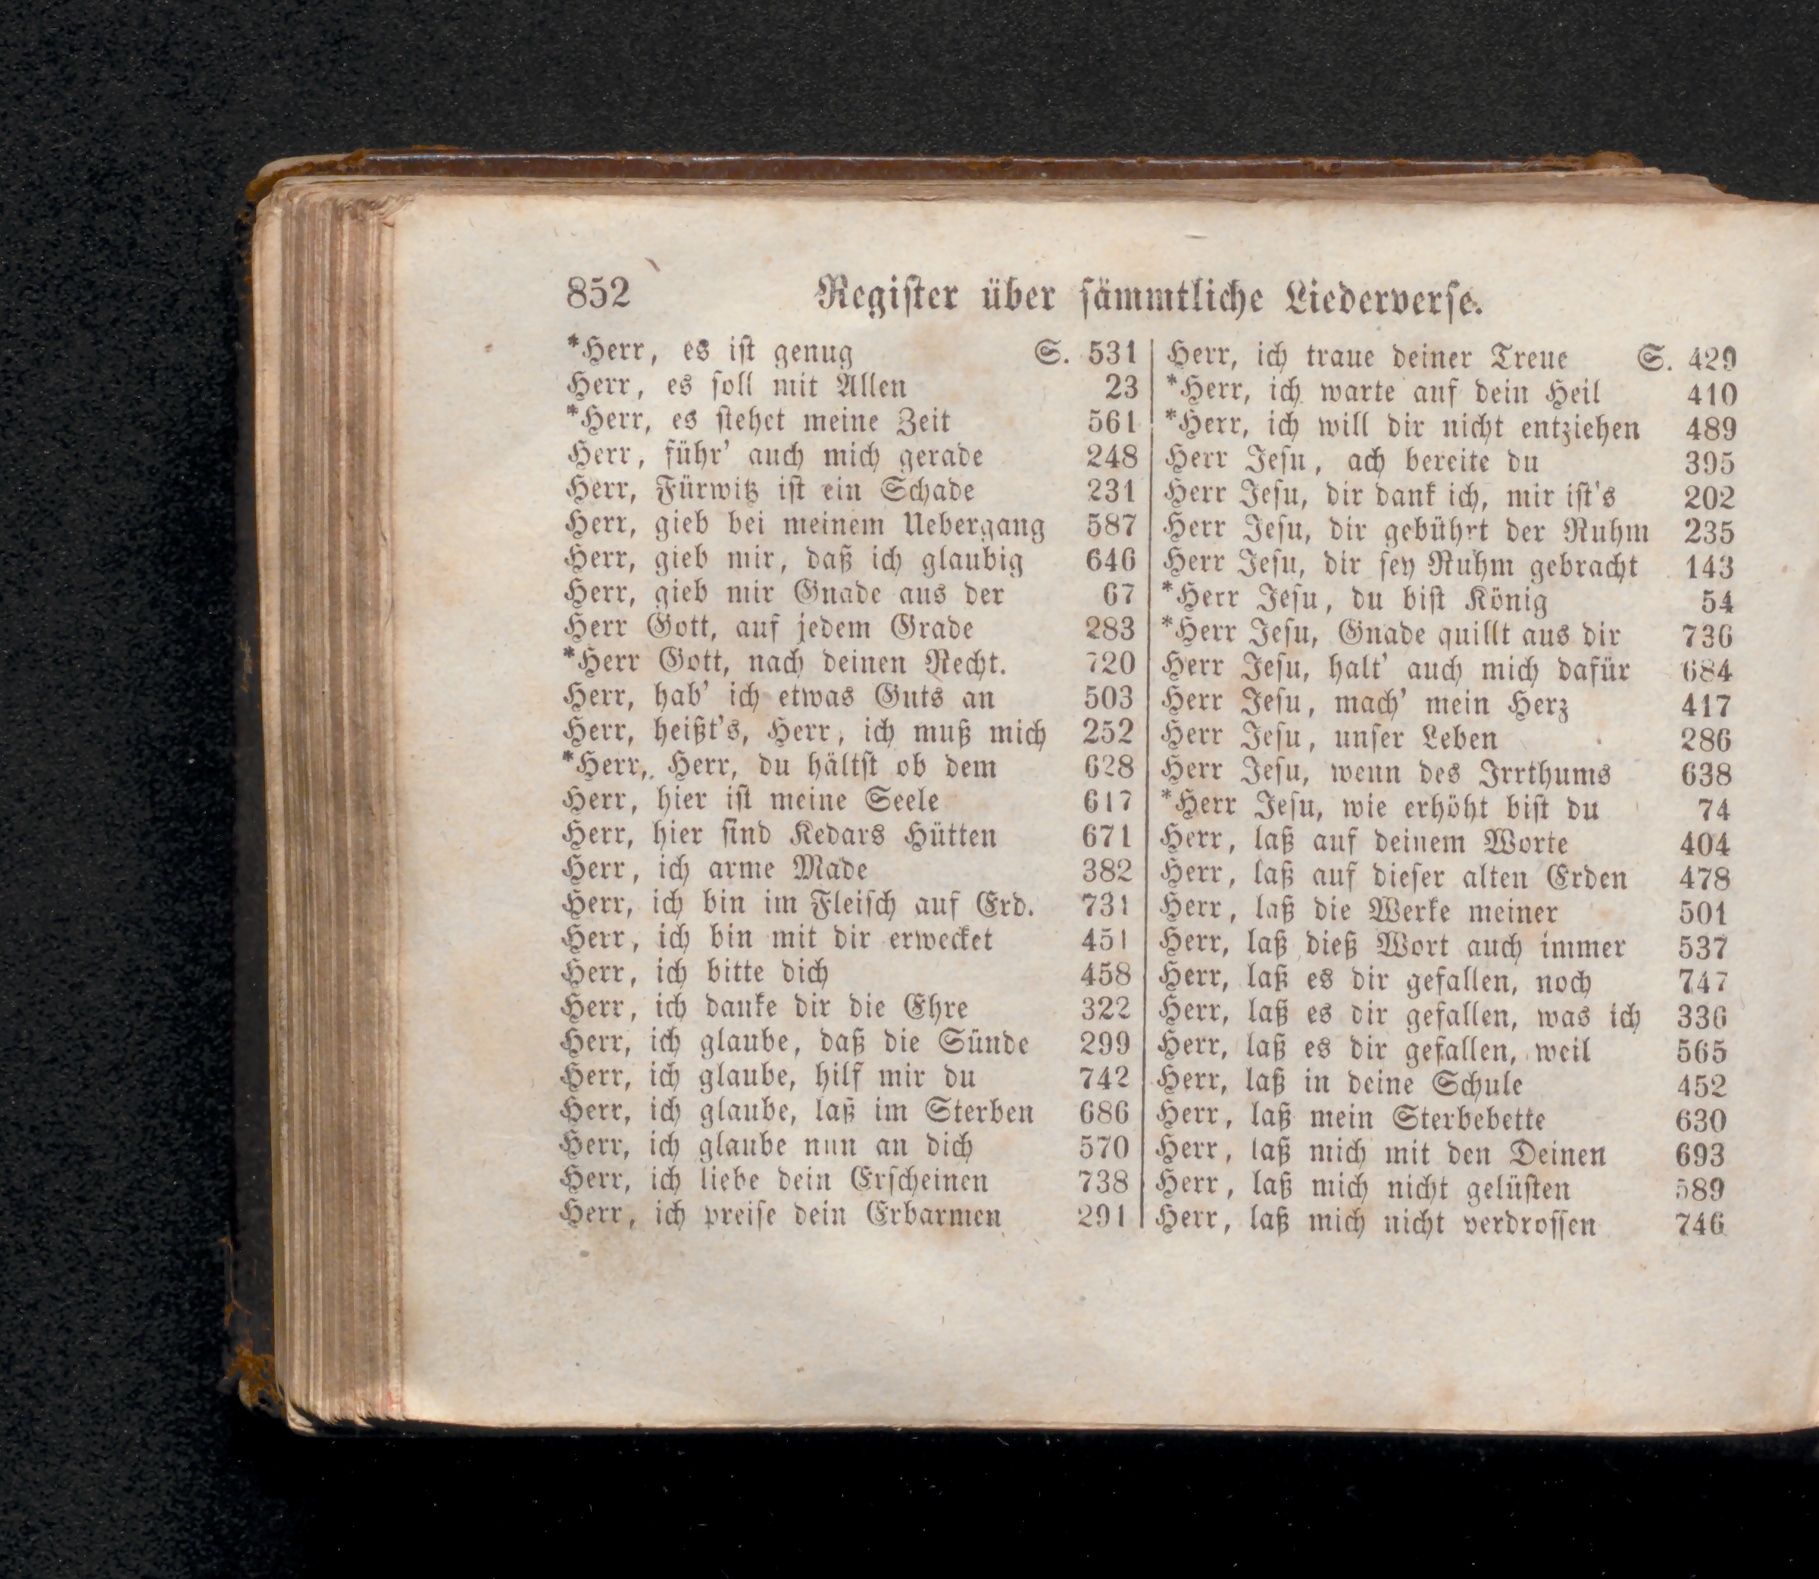 852 Register über sämmtliche Liederverse.
*Herr, es ist genug S. 531
Herr, es soll mit Allen 23
*Herr, es stehet meine Zeit 561
Herr, führ' auch mich gerade 248
Herr, Fürwitz ist ein Schade 231
Herr, gieb bei meinem Uebergang 587
Herr, gieb mir, daß ich glaubig 646
Herr, gieb mir Gnade aus der 67
Herr Gott, auf jedem Grade 283
*Herr Gott, nach deinen Recht. 720
Herr, hab' ich etwas Guts an 503
Herr, heißt's, Herr, ich muß mich 252
*Herr, Herr, du hältst ob dem 628
Herr, hier ist meine Seele 617
Herr, hier sind Kedars Hütten 671
Herr, ich arme Made 382
Herr, ich bin im Fleisch auf Erd. 731
Herr, ich bin mit dir erwecket 451
Herr, ich bitte dich 458
Herr, ich danke dir die Ehre 322
Herr, ich glaube, daß die Sünde 299
Herr, ich glaube, hilf mir du 742
Herr, ich glaube, laß im Sterben 686
Herr, ich glaube nun an dich 570
Herr, ich liebe dein Erscheinen 738
Herr, ich preise dein Erbarmen 291
Herr, ich traue deiner Treue S. 429
*Herr, ich warte auf dein Heil 410
*Herr, ich will dir nicht entziehen 489
Herr Jesu, ach bereite du 395
Herr Jesu, dir dank ich, mir ist's 202
Herr Jesu, dir gebührt der Ruhm 235
Herr Jesu, dir sey Ruhm gebracht 143
*Herr Jesu, du bist König 54
*Herr Jesu, Gnade quillt aus dir 736
Herr Jesu, halt' auch mich dafür 684
Herr Jesu, mach' mein Herz 417
Herr Jesu, unser Leben 286
Herr Jesu, wenn des Irrthums 638
*Herr Jesu, wie erhöht bist du 74
Herr, laß auf deinem Worte 404
Herr, laß auf dieser alten Erden 478
Herr, laß die Werke meiner 501
Herr, laß dieß Wort auch immer 537
Herr, laß es dir gefallen, noch 747
Herr, laß es dir gefallen, was ich 336
Herr, laß es dir gefallen, weil 565
Herr, laß in deine Schule 452
Herr, laß mein Sterbebette 630
Herr, laß mich mit den Deinen 693
Herr, laß mich nicht gelüsten 589
Herr, laß mich nicht verdrossen 746